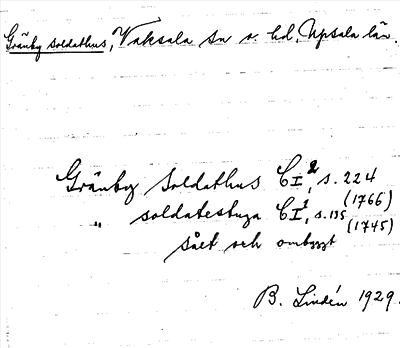 Gränby soldathus, Vaksala sn o. hd, Upsala län.
Gränby Soldathus CI², s. 224
(1766)
" soldatestuga CI¹, s. 135
(1745)
sålt och ombyggt
B. Lindén 1929.